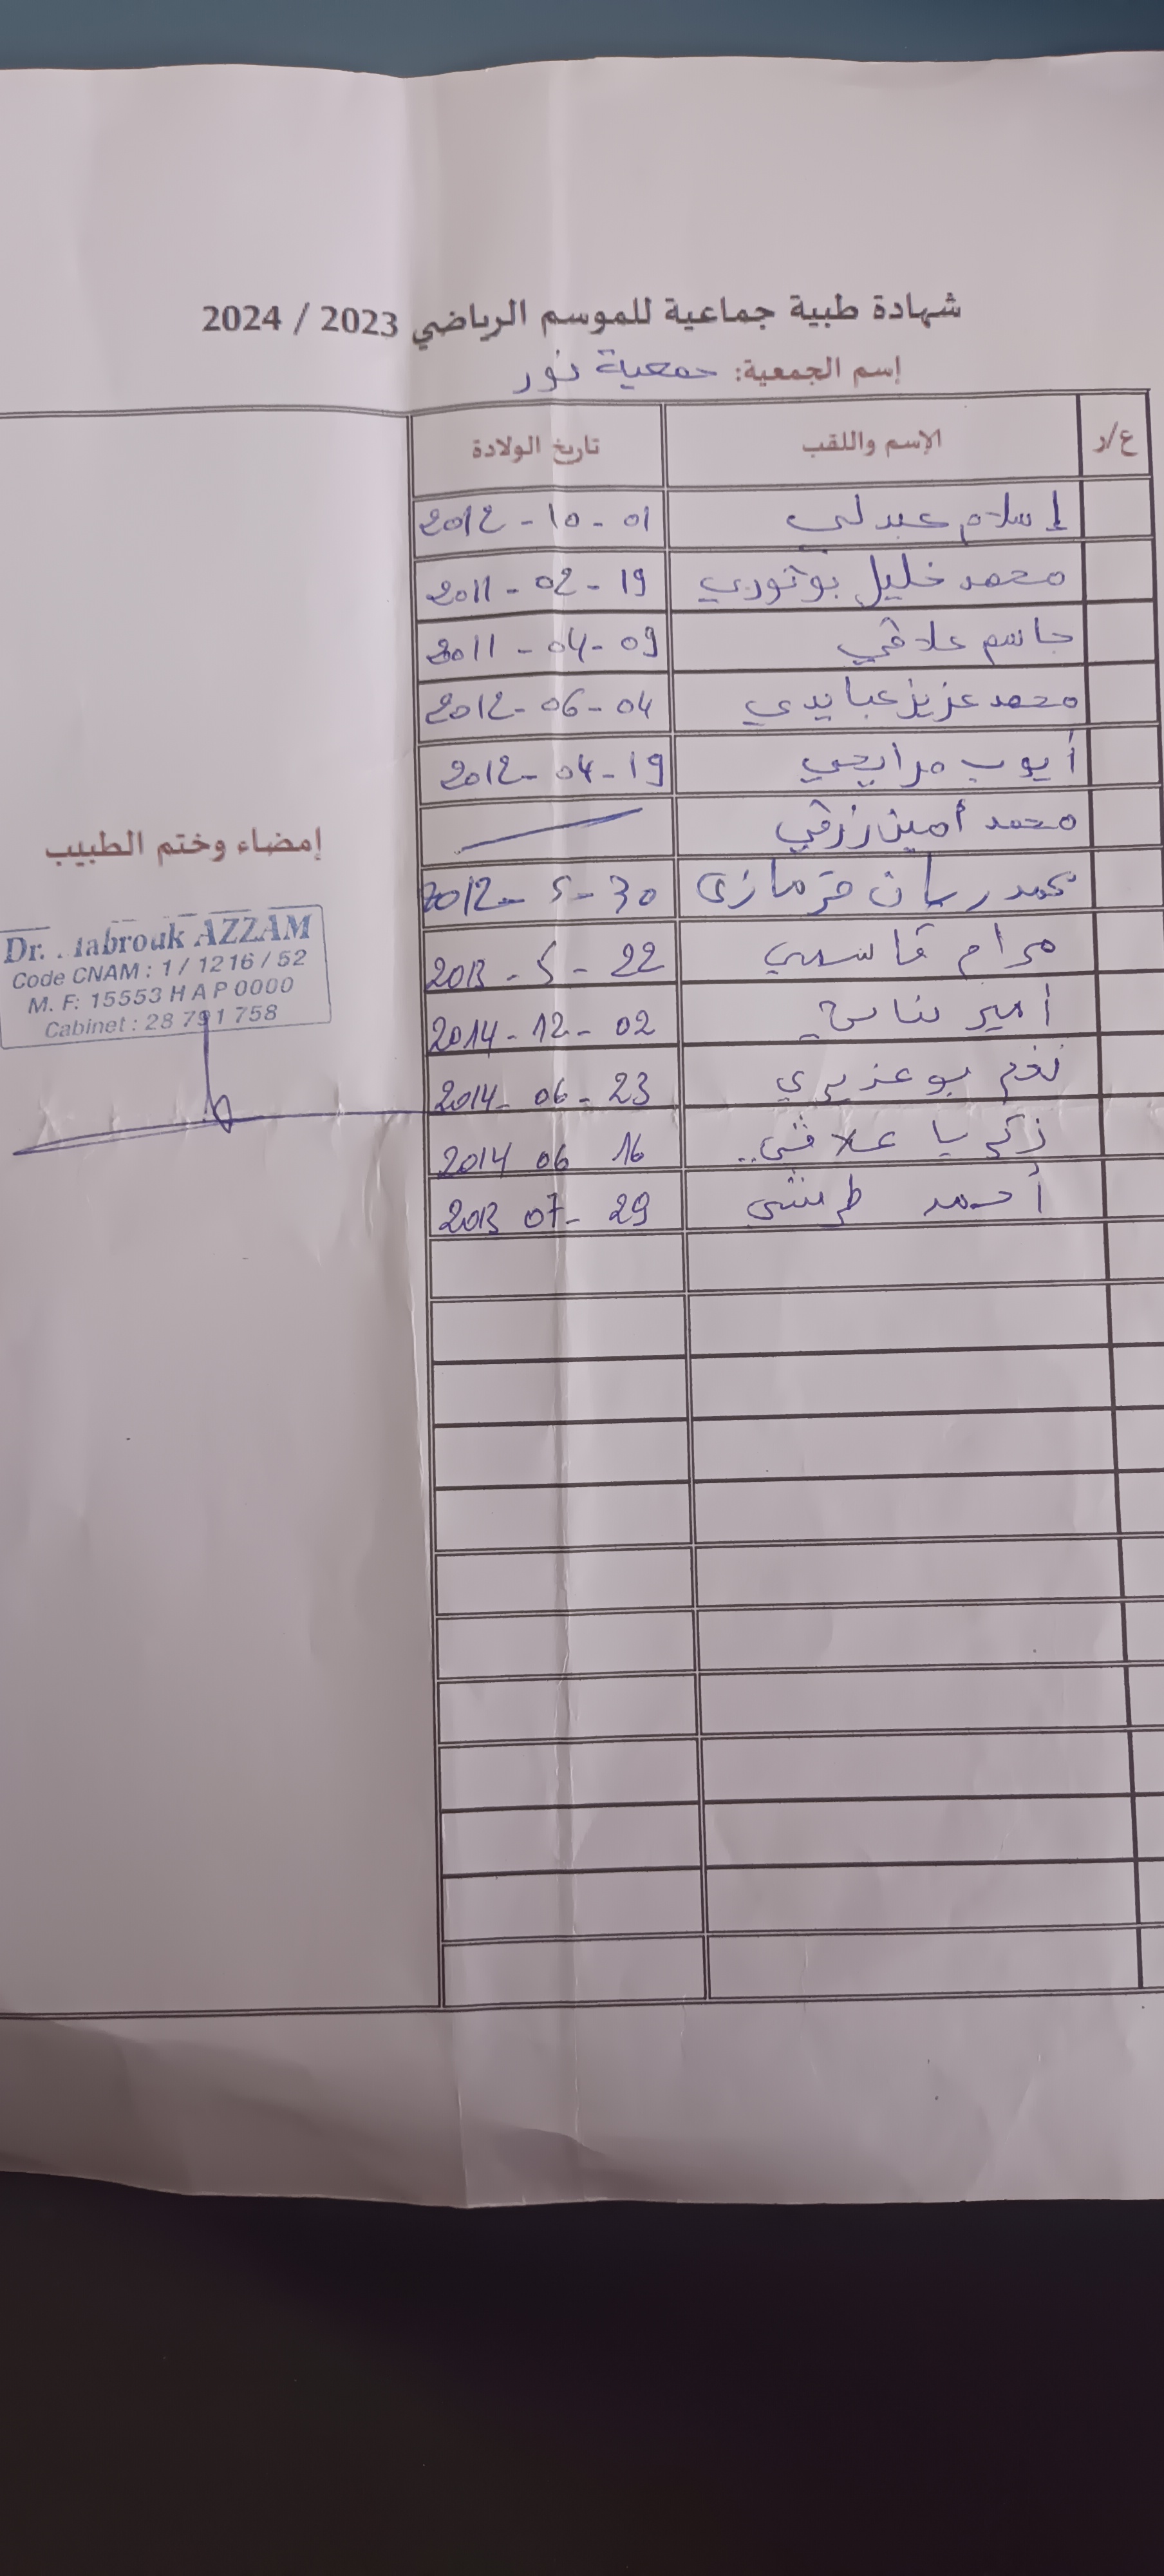 شهادة طبية جماعية للموسم الرياضي 2023 / 2024
إسم الجمعية: جمعية نور
ع/ر الإسم واللقب تاريخ الولادة
إسلام عبدلي 2012 - 10 - 01
محمد خليل بوثوري 2011 - 02 - 19
جاسم علاقي 2011 - 04 - 09
محمد عزيز عبايدي 2012 - 06 - 04
أيوب مرايحي 2012 - 04 - 19
محمد أمين زرقي
محمد ريان قرمازي 2012 - 5 - 30
مرام قاسمي 2013 - 5 - 22
أمير 2014 - 12 - 02
نغم بوعزيزي 2014 - 06 - 23
زكريا علاقي 2014 06 16
أحمد 2013 07 - 29
إمضاء وختم الطبيب
Dr. AZZAM
Code CNAM : 1 / 1216 / 52
M. F: 15553 H A P 0000
Cabinet : 28 791 758